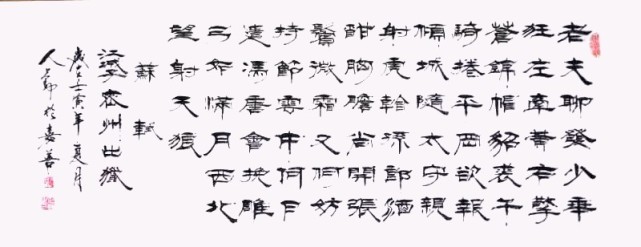 老夫聊發少年
狂左牽黃右擎
蒼錦帽貂裘千
騎捲平岡欲報
傾城隨太守親
射虎看孫郎酒
酣胸膽尚開張
鬢微霜又何妨
持節雲中何日
遣馮唐會挽雕
弓如滿月西北
望射天狼
蘇軾
江城子密州出獵
歲壬寅年夏月
人於嘉善